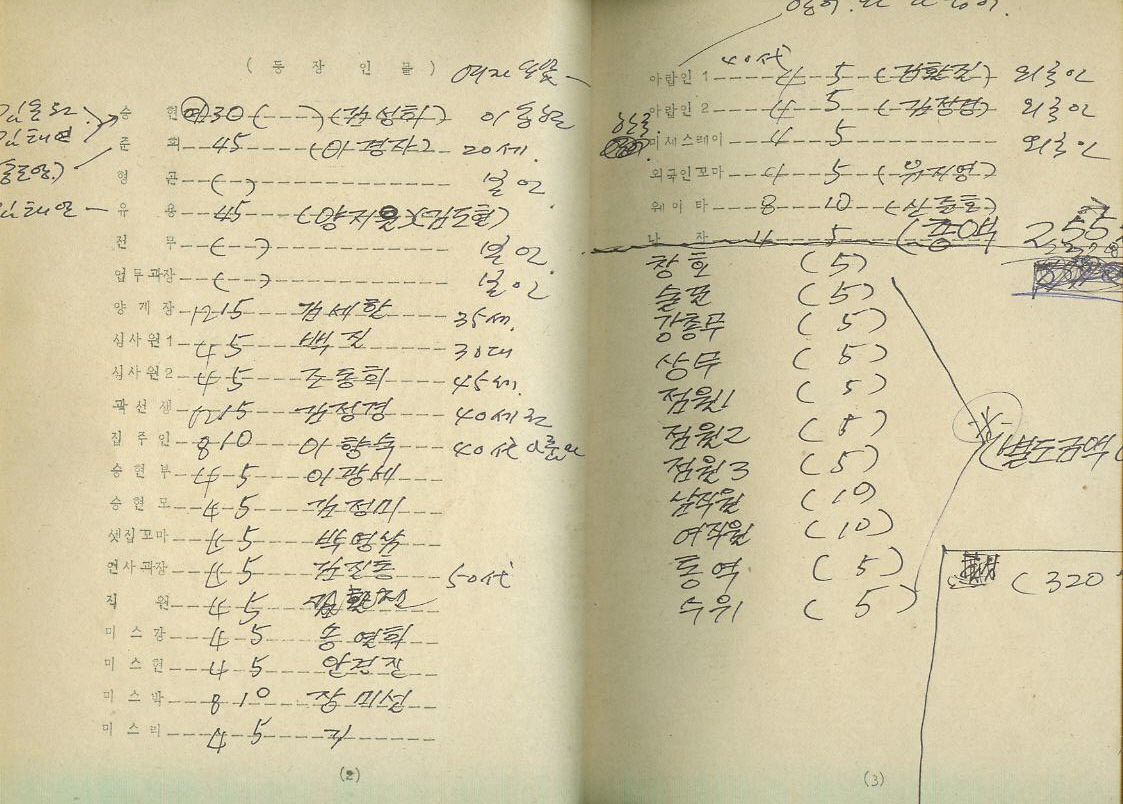 ( 등 장 인 물 )
승 현 30 (김성희)
준 희 45 (이경자) 20세.
형 곤 ( ) 본인
유 용 45 (김도현)
전 무 ( ) 본인
업무과장 ( ) 본인
양계장 12 15 김세한 35세.
심사원1 4 5 백진 30대
심사원2 4 5 조동희 45세.
곽선생 12 15 김정경 40세
집주인 8 10 이향숙 40세
승현부 4 5 이광세
승현모 4 5 김정미
셋집꼬마 4 5 박영식
인사과장 4 5 50대
직 원 4 5
미스강 4 5 송열희
미스현 4 5 안현진
미스박 8 10 장미성
미스리 4 5
(2)
40세
아랍인1 4 5 (김환진) 외국인
아랍인2 4 5 (김정경) 외국인
미제스레이 4 5 외국인
외국인꼬마 4 5 (유지영)
웨이타 8 10 (신동호)
남 자 4 5 (총액 255
창호 (5)
술포 (5)
강총무 (5)
상무 (5)
점원1 (5)
점원2 (5)
점원3 (5)
남직원 (10)
여직원 (10)
통역 (5)
수위 (5)
(별도금액
(320
(3)